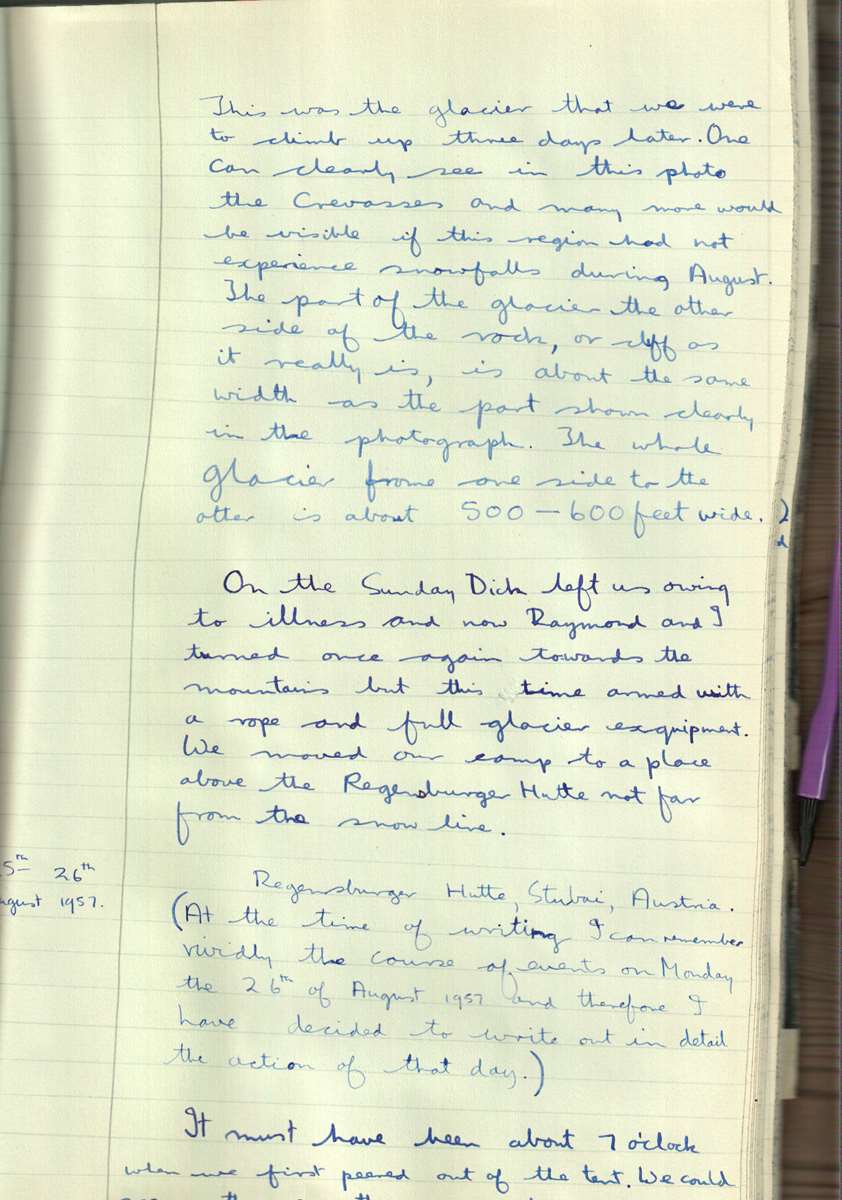 This was the glacier that we were
to climb up three days later. One
can clearly see in this photo
the Crevasses and many more would
be visible if this region had not
experience snowfalls during August.
The part of the glacier the other
side of the rock, or cliff as
it really is, is about the same
width as the part shown clearly
in the photograph. The whole
glacier frome one side to the
other is about 500 – 600 feet wide. )
On the Sunday Dick left us owing
to illness and now Raymond and I
turned once again towards the
mountains but this time armed with
a rope and full glacier exquipment.
We moved our camp to a place
above the Regensburger Hutte not far
from the snow line.
5th 26th
August 1957.
Regensburger Hutte, Stubai, Austria.
(At the time of writing I can remember
vividly the course of events on Monday
the 26th of August 1957 and therefore I
have decided to write out in detail
the action of that day.)
It must have been about 7 o'clock
when we first peered out of the tent. We could